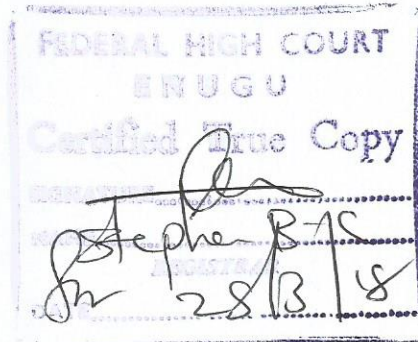 FEDERAL HIGH COURT
ENUGU
Certified True Copy
SIGNATURE
Stephe B-AC
REGISTRAR
28/3/18
DATE